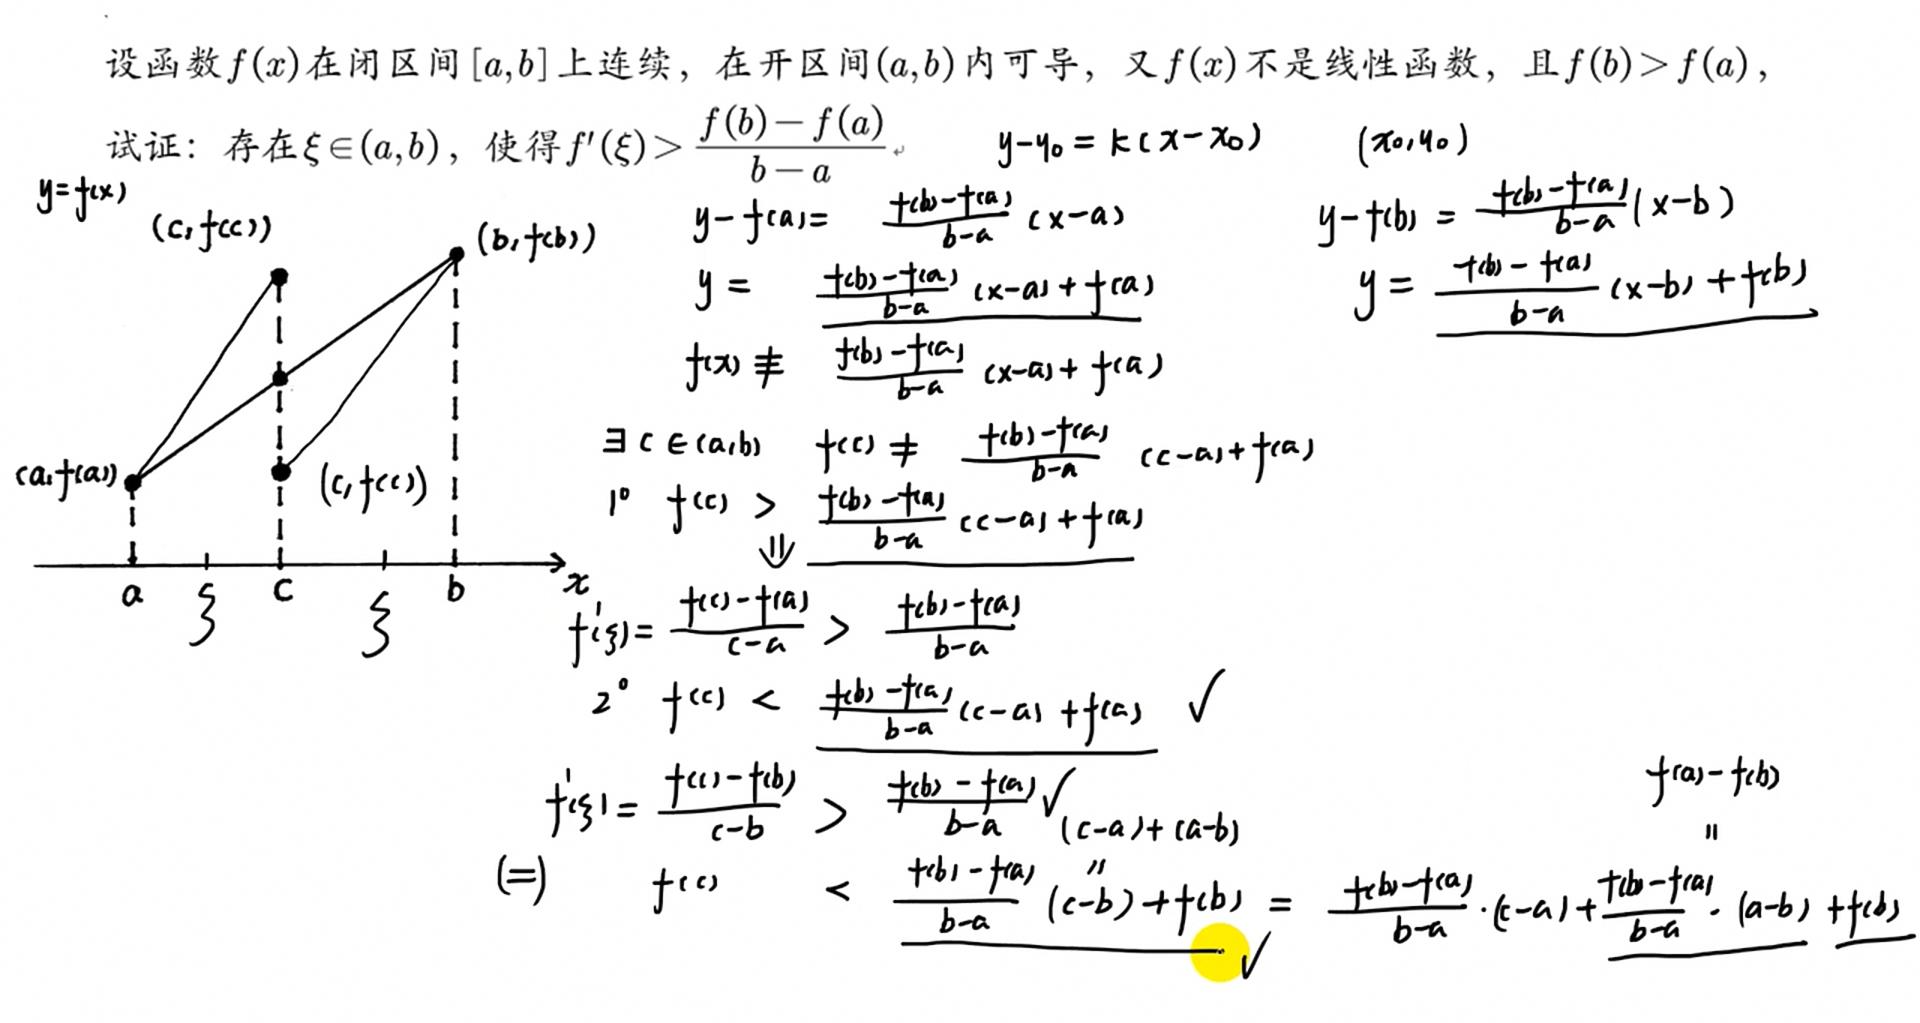 设函数f(x)在闭区间[a,b]上连续，在开区间(a,b)内可导，又f(x)不是线性函数，且f(b)>f(a)，
试证：存在ξ∈(a,b)，使得f′(ξ)>\frac{f(b)-f(a)}{b-a}.
y-y₀=k(x-x₀) (x₀,y₀)
y=f(x)
(c,f(c))
(b,f(b))
(a,f(a))
(c,f(c))
a ξ c ξ b x
y-f(a)=\frac{f(b)-f(a)}{b-a}(x-a)
y=\frac{f(b)-f(a)}{b-a}(x-a)+f(a)
y-f(b)=\frac{f(b)-f(a)}{b-a}(x-b)
y=\frac{f(b)-f(a)}{b-a}(x-b)+f(b)
f(x)≢\frac{f(b)-f(a)}{b-a}(x-a)+f(a)
∃c∈(a,b) f(c)≠\frac{f(b)-f(a)}{b-a}(c-a)+f(a)
1° f(c)>\frac{f(b)-f(a)}{b-a}(c-a)+f(a)
⇓
f′(ξ)=\frac{f(c)-f(a)}{c-a}>\frac{f(b)-f(a)}{b-a}
2° f(c)<\frac{f(b)-f(a)}{b-a}(c-a)+f(a) ✓
f′(ξ)=\frac{f(c)-f(b)}{c-b}>\frac{f(b)-f(a)}{b-a} ✓
(c-a)+(a-b)
=
f(a)-f(b)
=
(=) f(c)<\frac{f(b)-f(a)}{b-a}(c-b)+f(b)=\frac{f(b)-f(a)}{b-a}·(c-a)+\frac{f(b)-f(a)}{b-a}·(a-b)+f(b)
✓